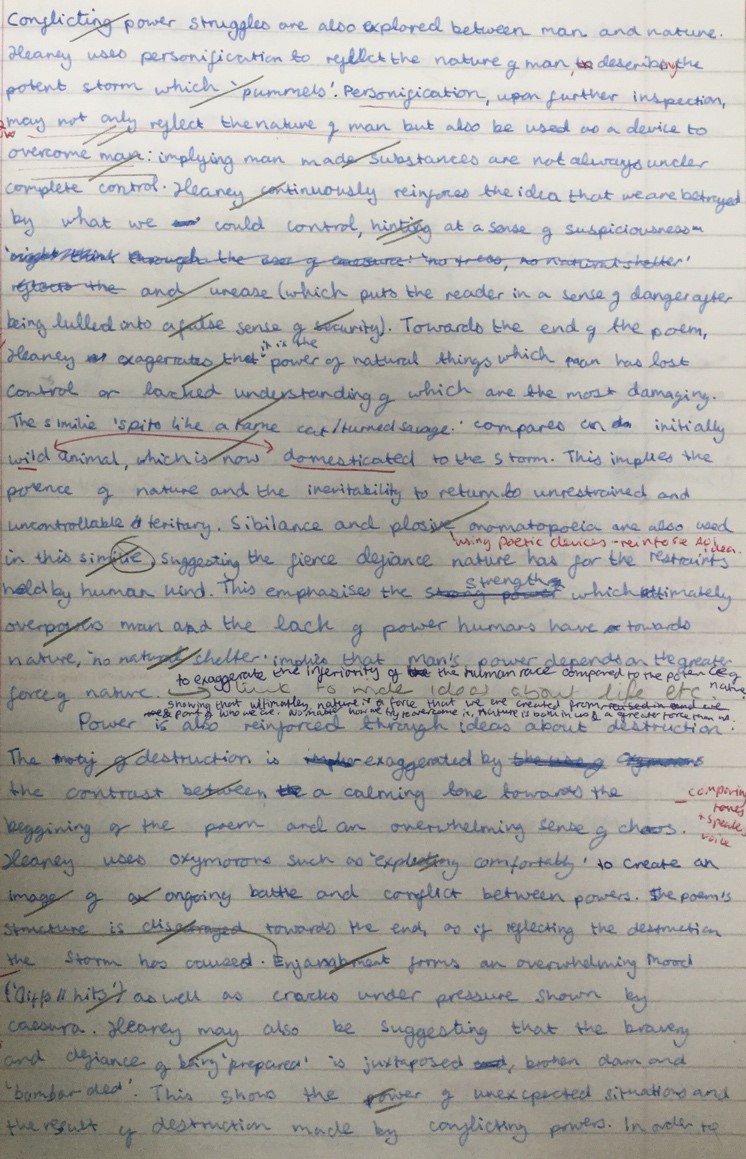 Conflicting power struggles are also explored between man and nature.
Heaney uses personification to reflect the nature of man, describing the
potent storm which 'pummels'. Personification, upon further inspection,
may not only reflect the nature of man but also be used as a device to
overcome man: implying man made substances are not always under
complete control. Heaney continuously reinforces the idea that we are betrayed
by what we could control, hinting at a sense of suspiciousness
might think through the use of caesura: 'no trees, no natural shelter'
reflects the and unease (which puts the reader in a sense of danger after
being lulled into a false sense of security). Towards the end of the poem,
it is the
Heaney exagerates that power of natural things which man has lost
control or lacked understanding of which are the most damaging.
The similie 'spits like a tame cat/turned savage.' compares an initially
wild animal, which is now domesticated to the storm. This implies the
potence of nature and the inevitability to return to unrestrained and
uncontrollable teritary. Sibilance and plosive onomatopoeia are also used
using poetic devices - reinforse idea.
in this similie suggesting the fierce defiance nature has for the restraints
strength
held by human kind. This emphasises the strong power which ultimately
overpowers man and the lack of power humans have towards
nature, 'no natural shelter' implies that man's power depends on the greater
to exaggerate the inferiority of the human race compared to the potence of nature
force of nature. link to wide ideas about life etc
showing that ultimately, nature is a force that we are created from and we
part of who we are. No matter how we try to overcome it, nature is both in us & a greater force than us.
Power is also reinforced through ideas about destruction.
The of destruction is exaggerated by the use of Oxymorons
the contrast between a calming tone towards the
comparing
tones
+ speakers
voice
beggining of the poem and an overwhelming sense of chaos.
Heaney uses oxymorons such as 'exploding comfortably' to create an
image of an ongoing battle and conflict between powers. The poem's
structure is towards the end, as if reflecting the destruction
the storm has caused. Enjambment forms an overwhelming mood
('Cliffs // hits') as well as cracks under pressure shown by
caesura. Heaney may also be suggesting that the bravery
and defiance of being 'prepared' is juxtaposed broken down and
'bombarded'. This shows the power of unexcpected situations and
the result of destruction made by conflicting powers. In order to